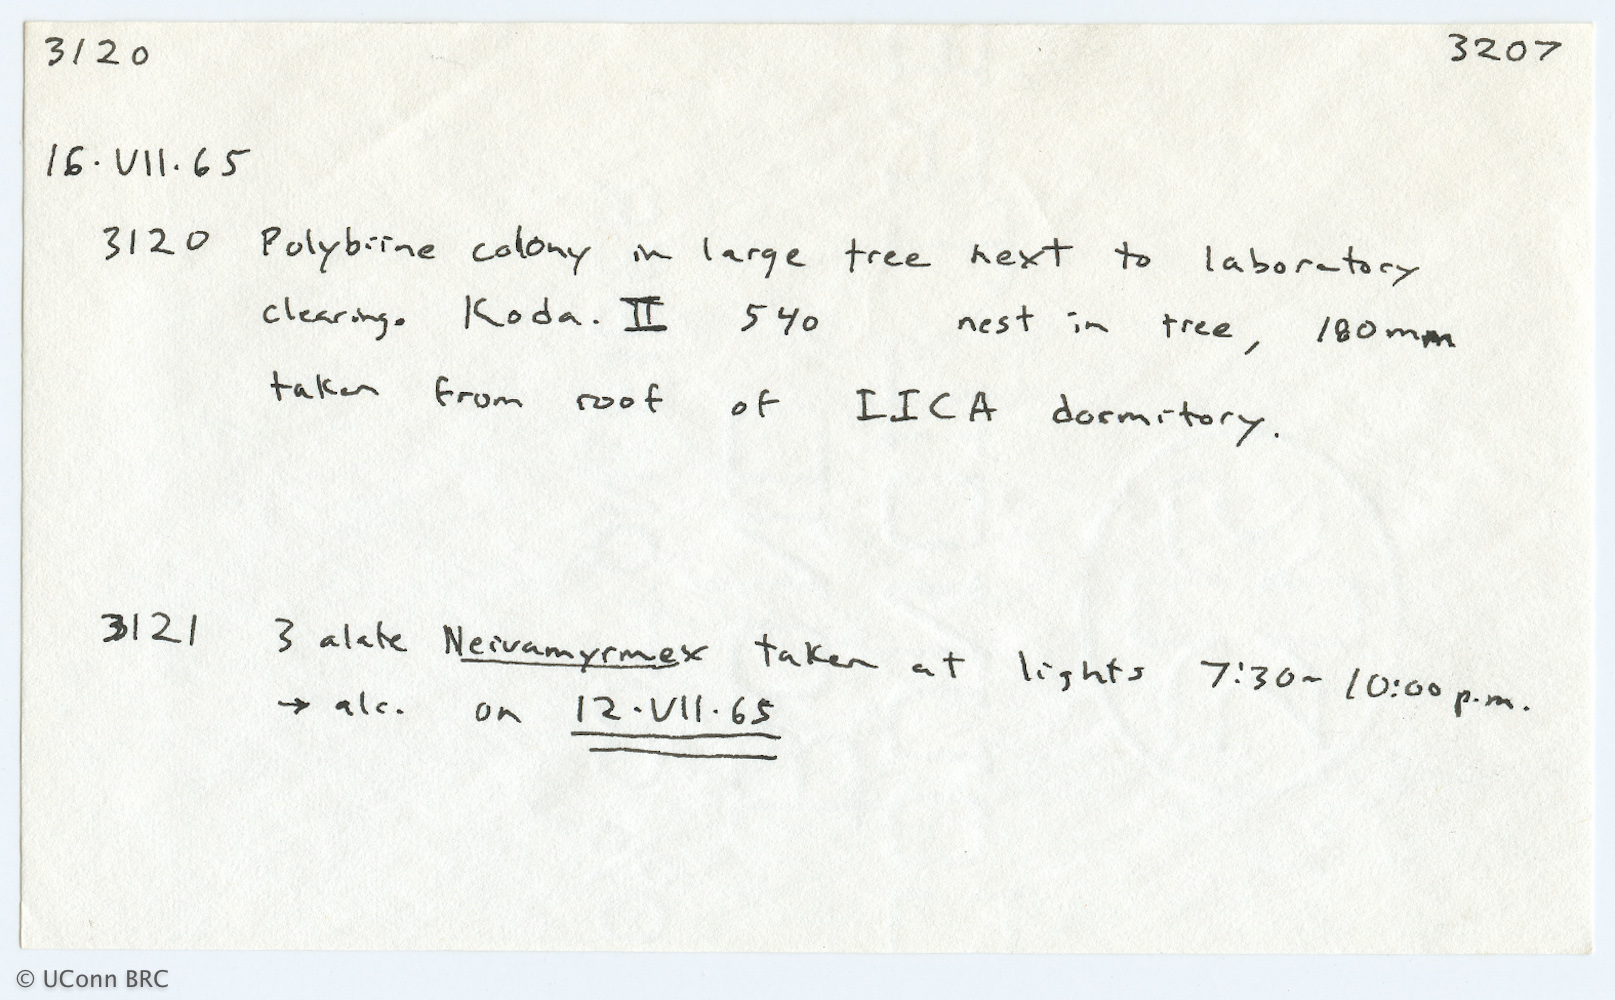 3120 3207
16.VII.65
3120 Polybiine colony in large tree next to laboratory
clearing. Koda. II 540 nest in tree, 180mm
taken from roof of IICA dormitory.
3121 3 alate Neivamyrmex taken at lights 7:30~10:00 p.m.
→ alc. on 12.VII.65
© UConn BRC